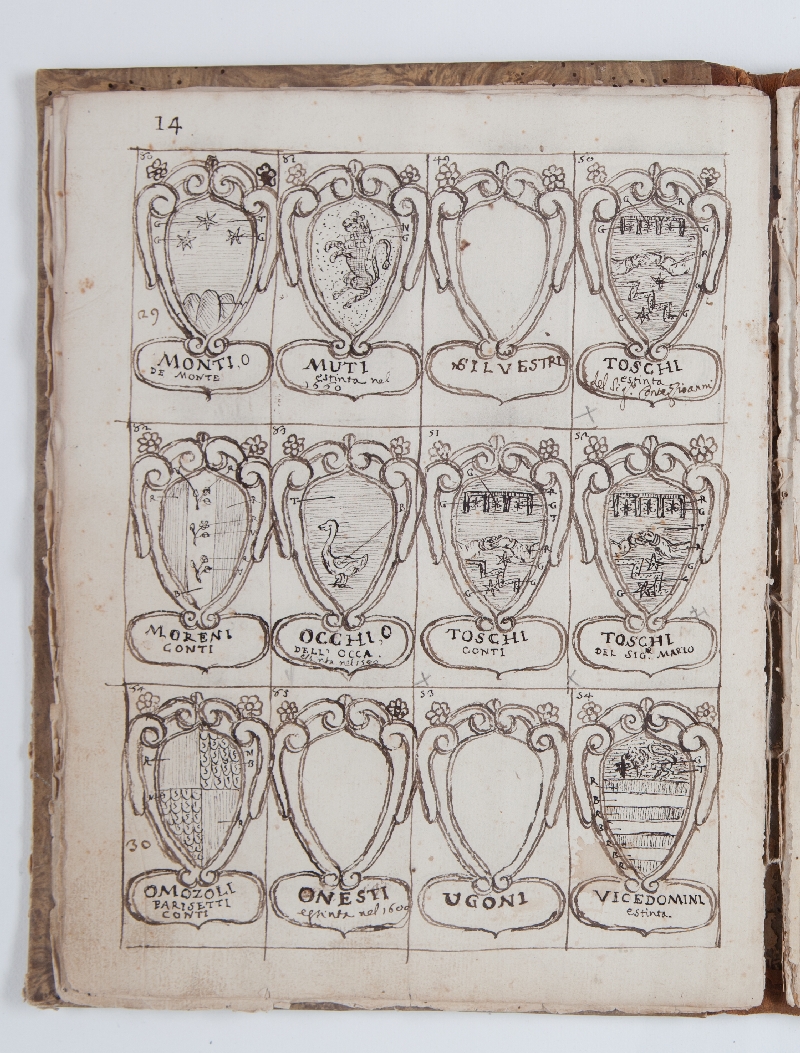 14
49
50
G
G
T
G
N
G
G
R
G
R
R
G
G
29
MONTI, O
DE MONTE
MUTI
estinta nel
SILVESTRI
TOSCHI
estinta
del Sig. Conte Gioanni
82
83
51
52
R
R
R
B
T
B
G
G
R
G
T
R
G
G
G
R
G
T
R
G
G
MORENI
CONTI
OCCHI, O
DELL' OCCA.
TOSCHI
CONTI
TOSCHI
DEL SIG. MARIO
53
54
R
R
G
T
R
B
R
B
R
B
R
30
OMOZOLI
PARISETTI
CONTI
ONESTI
estinta nel 1600
UGONI
VICEDOMINI
estinta.